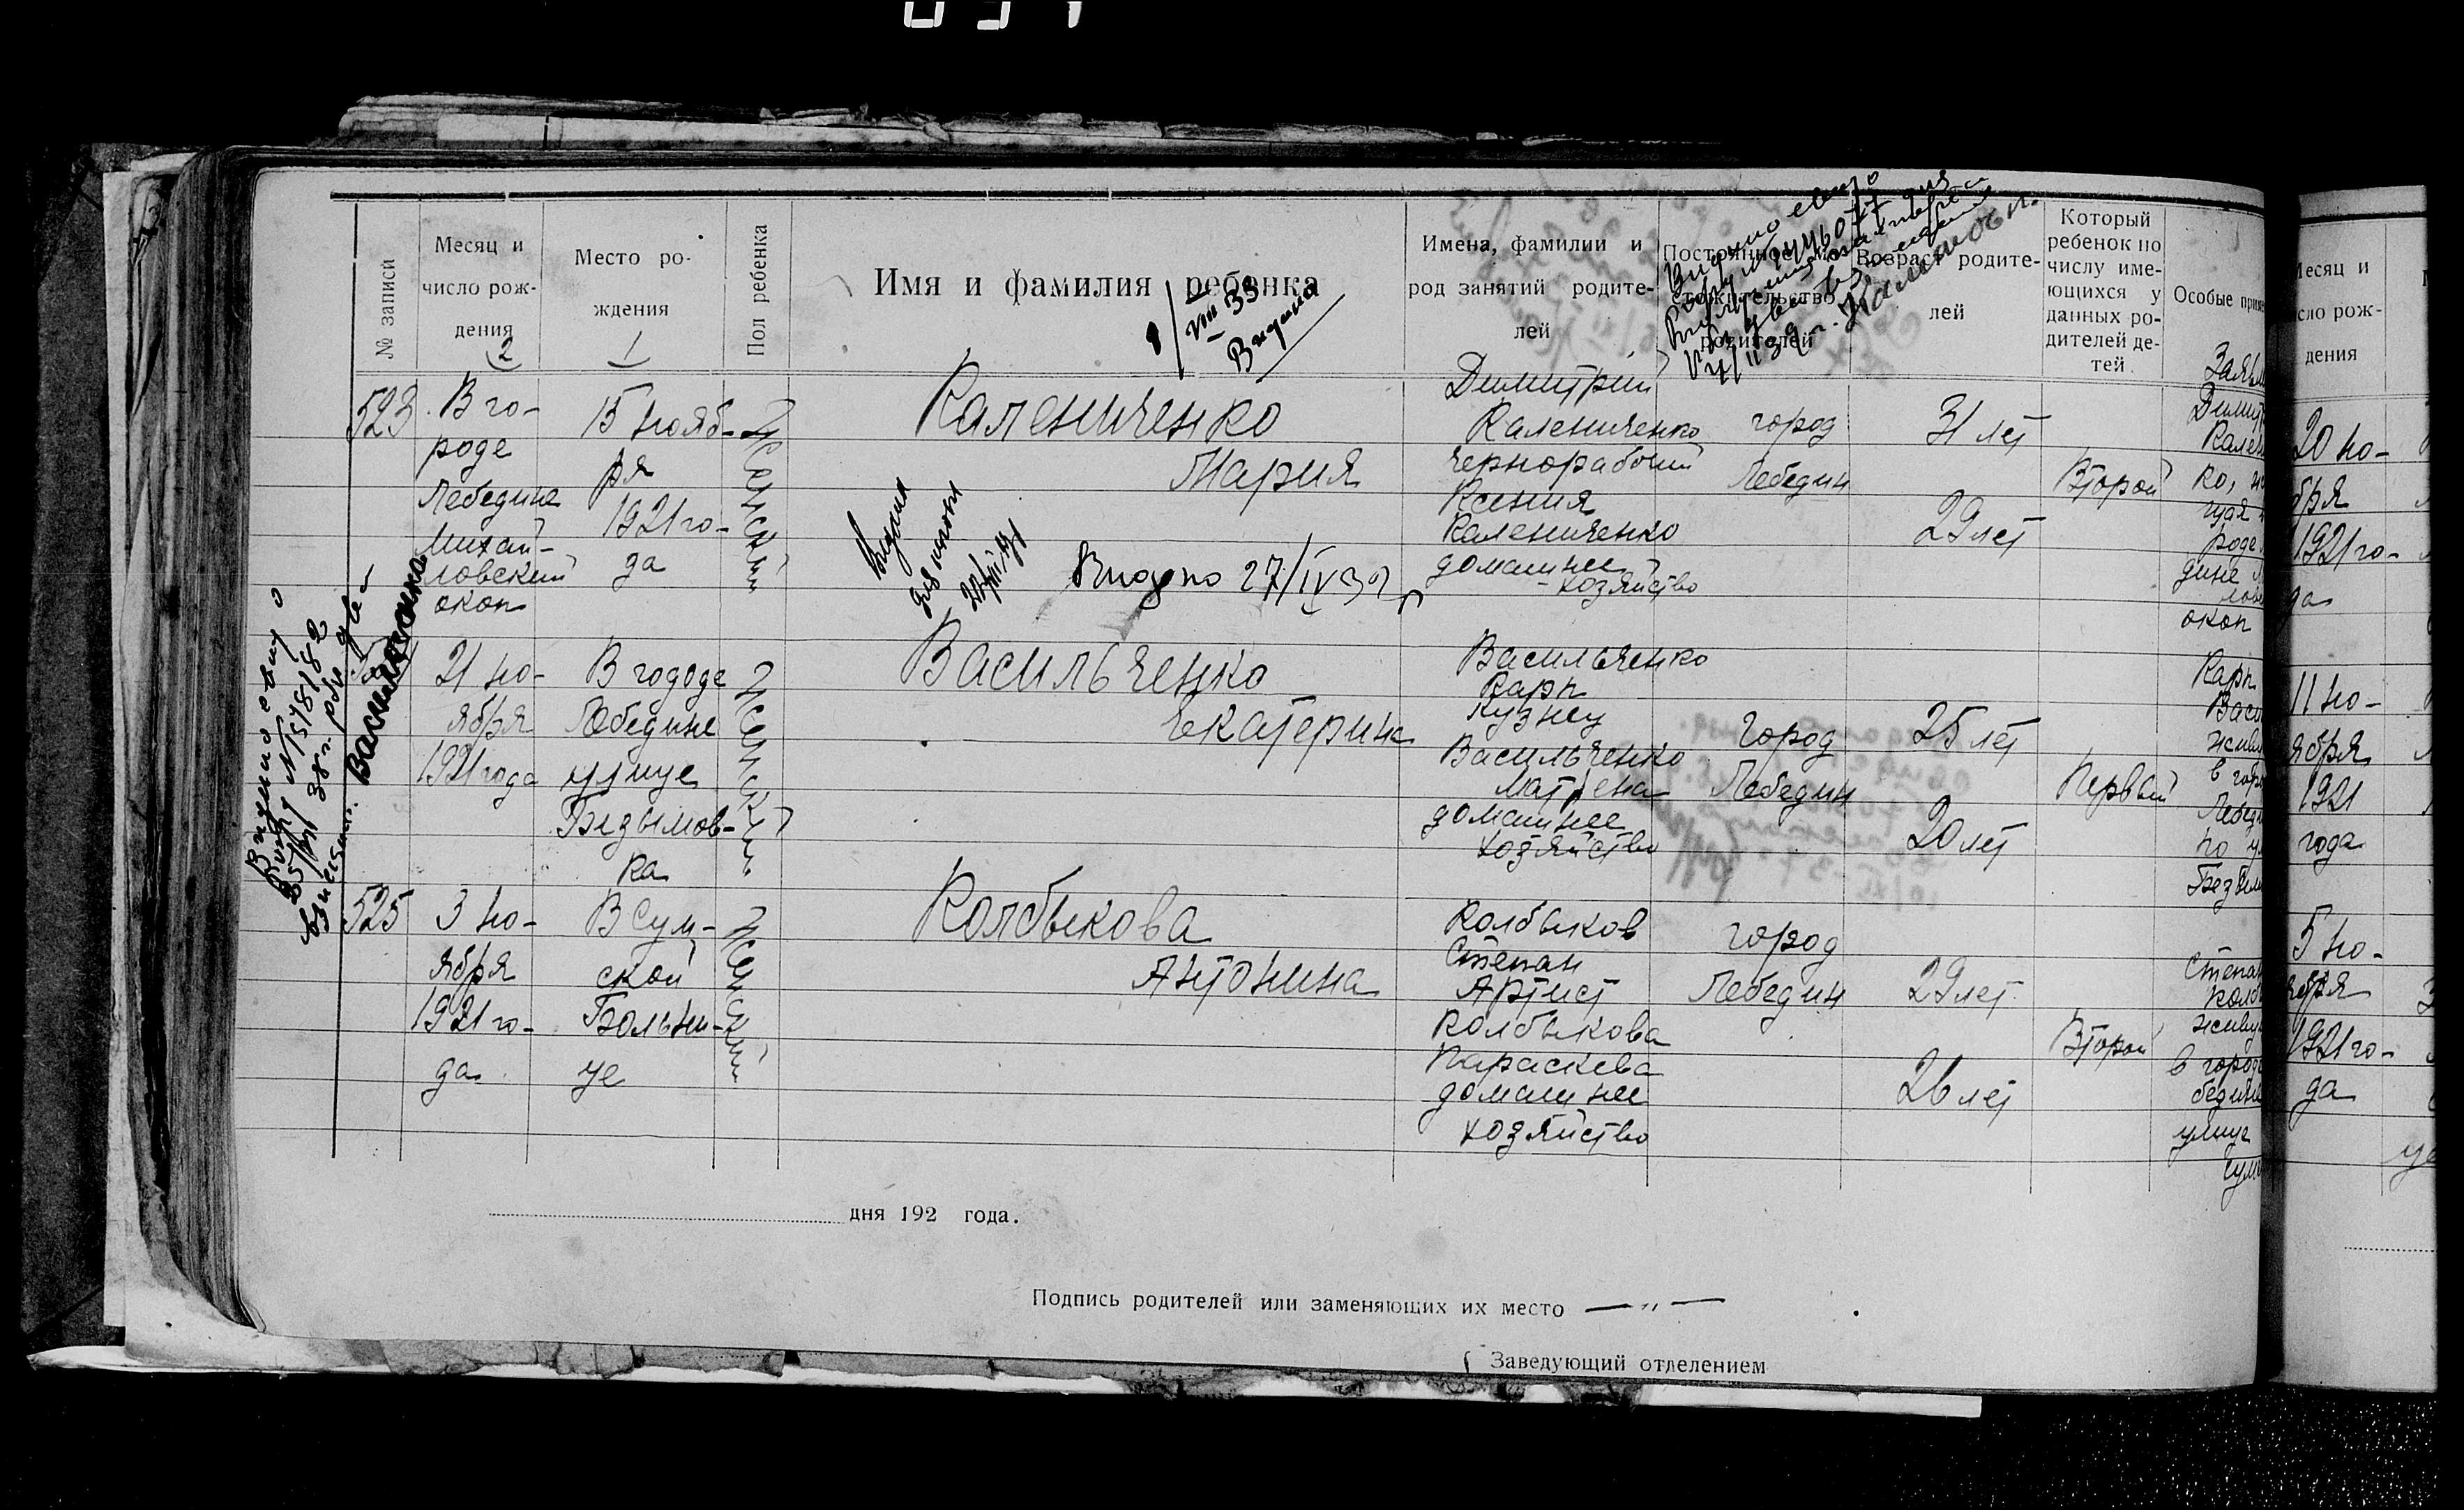 № записи
Месяц и
число рож-
дения
2
Место ро-
ждения
1
Пол ребенка
Имя и фамилия ребенка
Имена, фамилии и
род занятий родите-
лей
Постоянное
жительство
родителей
Возраст родите-
лей
Который
ребенок по
числу име-
ющихся у
данных ро-
дителей де-
тей
Особые
VIII 33
Видана
523
В го-
роде
Лебедине
Михай-
ловский
окоп
15 нояб-
ря
1921 го-
да
женский
Калениченко
Мария
Видано 27/IV 39
Димитрий
Калениченко
чернорабочий
Ксения
Калениченко
домашнее
хозяйство
город
Лебедин
31 лет
29 лет
Второй
окоп
21 но-
ября
1921 года
В гододе
Лебедине
улице
Безымов-
ка
женский
Васильченко
Екатерина
Васильченко
Карп
Кузнец
Васильченко
Матрена
домашнее
хозяйство
город
Лебедин
25 лет
20 лет
Первый
Карп
525
3 но-
ября
1921 го-
да
В Сум-
ской
Больни-
це
женский
Колбыкова
Антонина
Колбыков
Степан
Артист
Колбыкова
Параскева
домашнее
хозяйство
город
Лебедин
29 лет
26 лет
Второй
Степан
в городе
бедине
улице
дня 192 года.
Подпись родителей или заменяющих их место — „ —
Заведующий отделением
Месяц и
число рож-
дения
20 но-
ября
1921 го-
да
11 но-
ября
1921
года
5 но-
ября
1921 го-
да